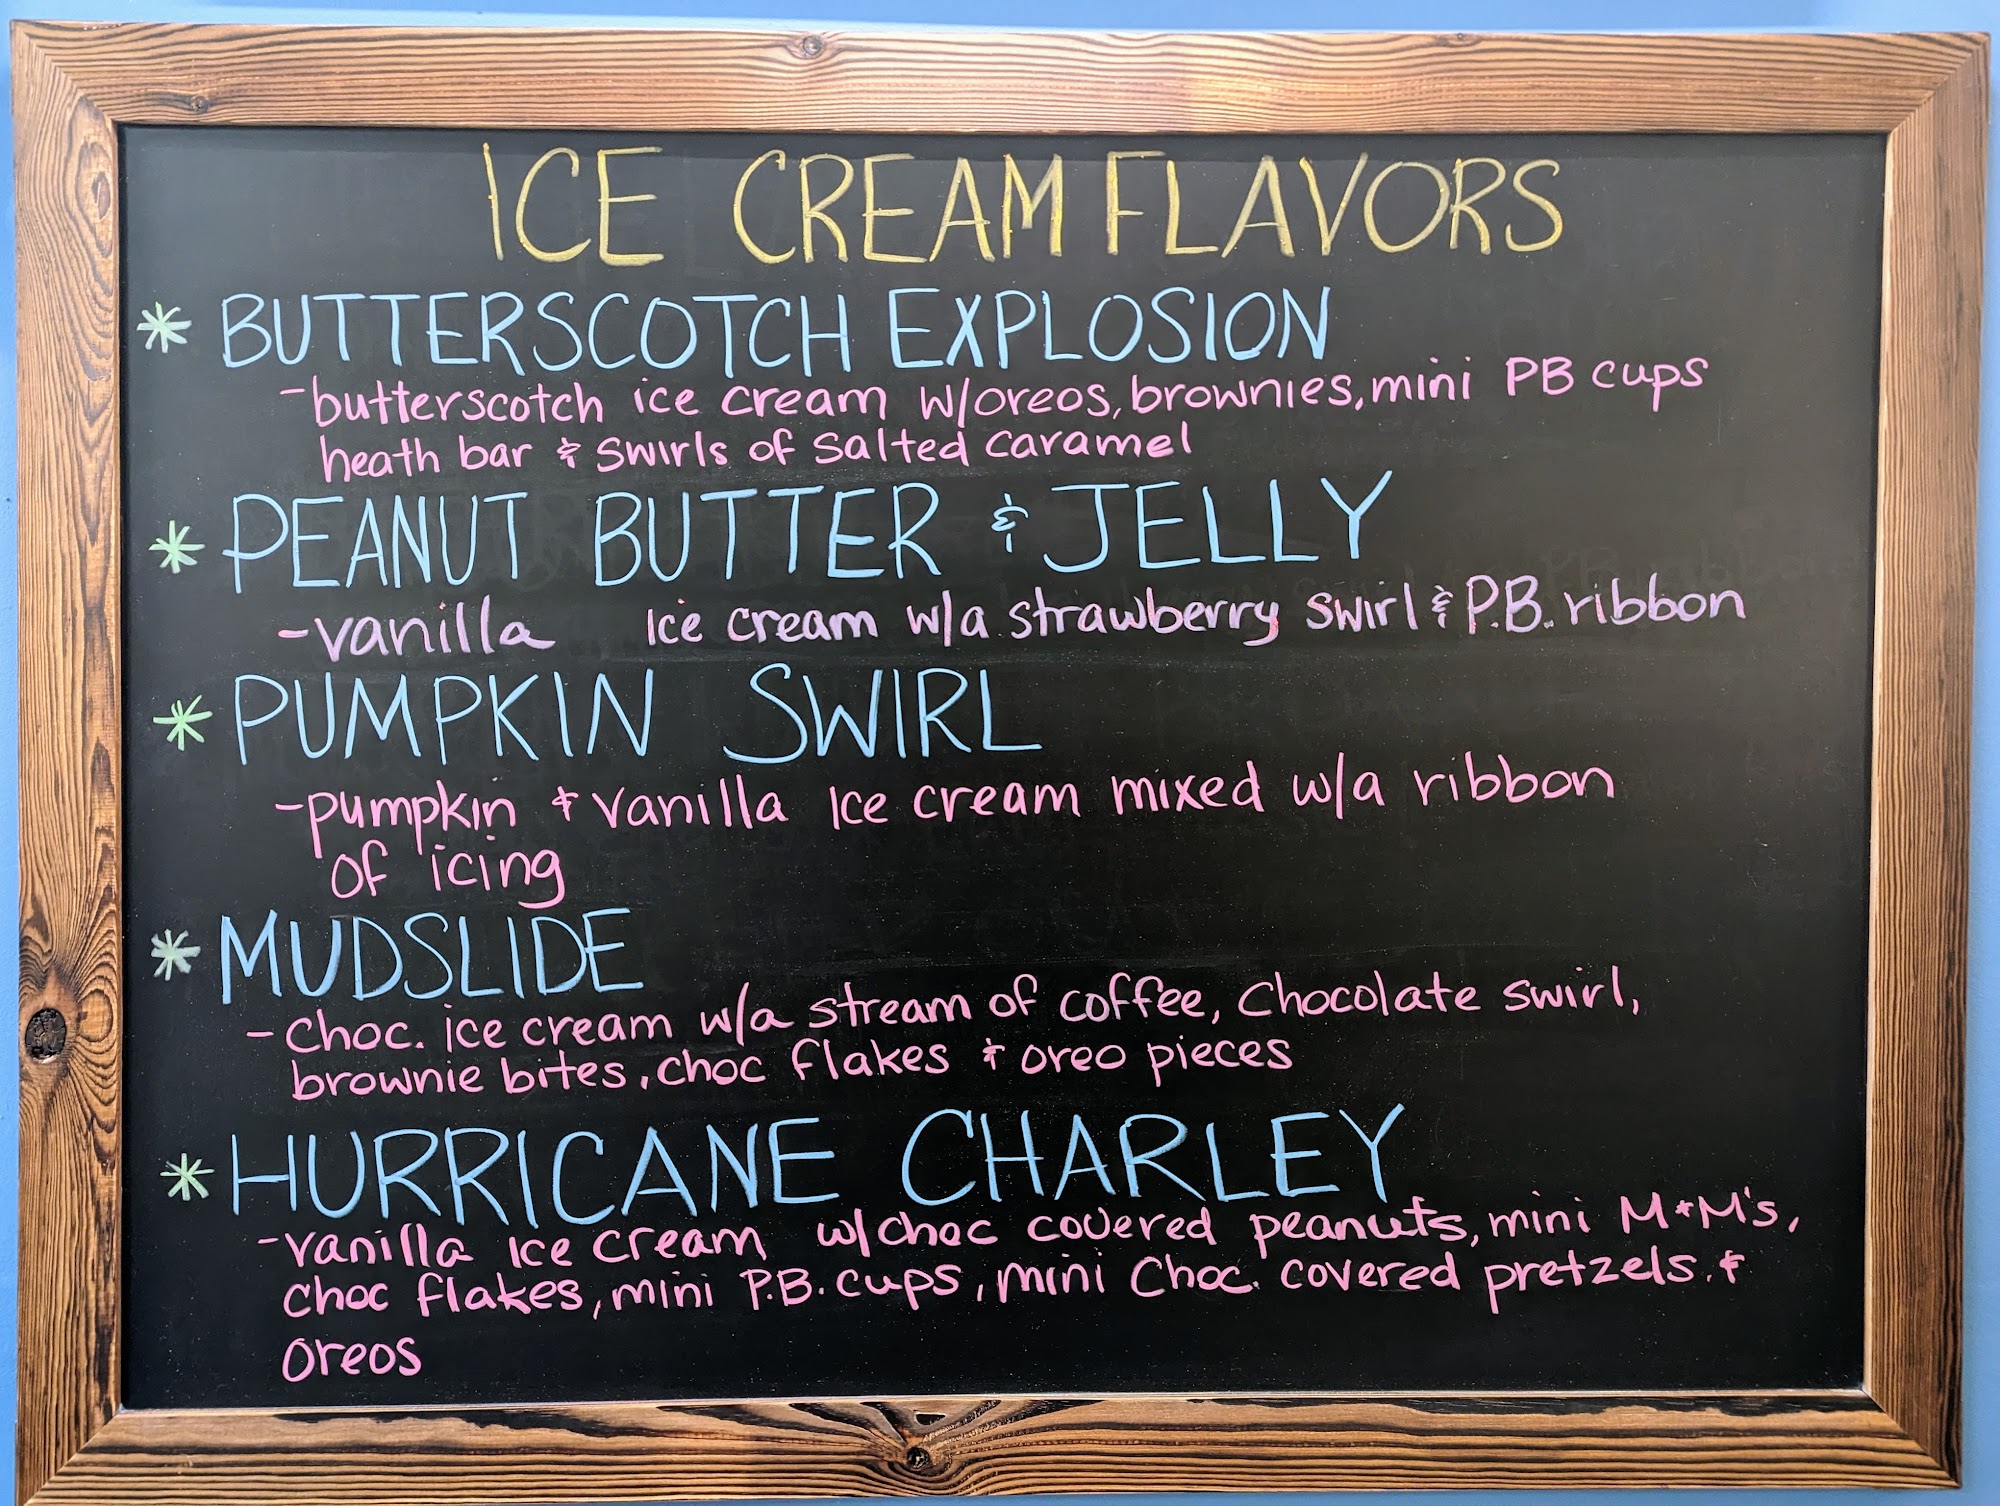 ICE CREAM FLAVORS
* BUTTERSCOTCH EXPLOSION
-butterscotch ice cream w/oreos, brownies, mini PB cups
heath bar & swirls of salted caramel
* PEANUT BUTTER & JELLY
-vanilla ice cream w/a strawberry swirl & P.B. ribbon
* PUMPKIN SWIRL
-pumpkin & vanilla ice cream mixed w/a ribbon
of icing
* MUDSLIDE
-choc. ice cream w/a stream of coffee, chocolate swirl,
brownie bites, choc flakes & oreo pieces
* HURRICANE CHARLEY
-vanilla ice cream w/choc covered peanuts, mini M&M's,
choc flakes, mini P.B. cups, mini choc. covered pretzels. &
oreos